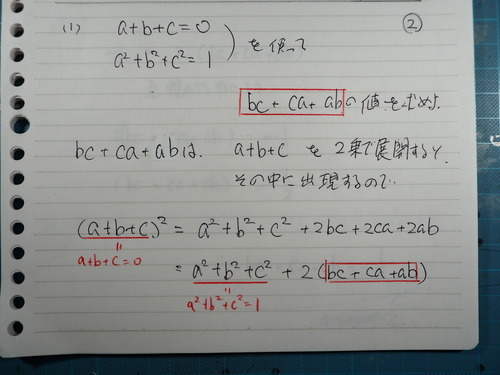 (1) a+b+c=0 ②
a²+b²+c²=1 ) を使って
bc+ca+abの値を求めよ.
bc+ca+abは、 a+b+c を2乗で展開すると、
その中に出現するので、
(a+b+c)² = a²+b²+c²+2bc+2ca+2ab
=
a+b+c=0
= a²+b²+c² + 2(bc+ca+ab)
=
a²+b²+c²=1